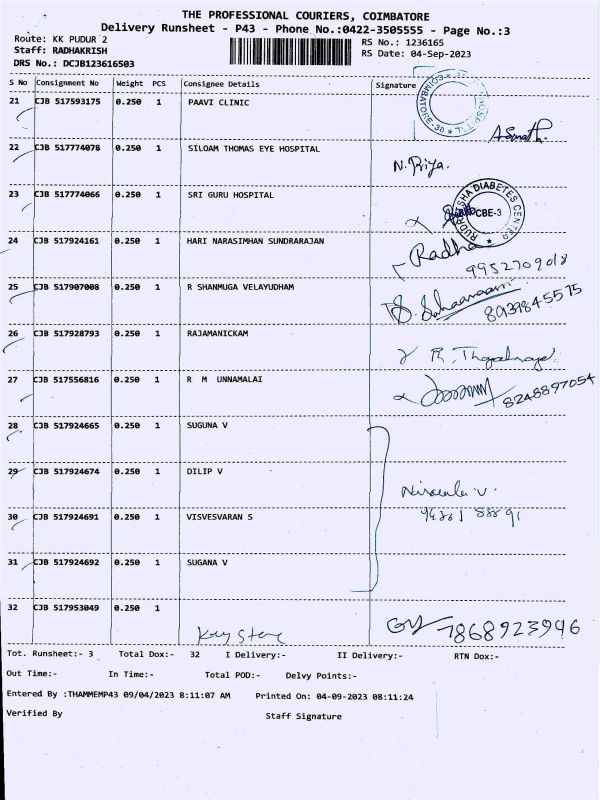 THE PROFESSIONAL COURIERS, COIMBATORE
Delivery Runsheet - P43 - Phone No.:0422-3505555 - Page No.:3
Route: KK PUDUR 2 RS No.: 1236165
Staff: RADHAKRISH RS Date: 04-Sep-2023
DRS No.: DCJB123616503
S No Consignment No Weight PCS Consignee Details Signature
21 CJB 517593175 0.250 1 PAAVI CLINIC
COIMBATORE-38
22 CJB 517774078 0.250 1 SILOAM THOMAS EYE HOSPITAL N. Priya.
23 CJB 517774066 0.250 1 SRI GURU HOSPITAL
DIABETES CENTER CBE-3
24 CJB 517924161 0.250 1 HARI NARASIMHAN SUNDRARAJAN Radha
9952709018
25 CJB 517907008 0.250 1 R SHANMUGA VELAYUDHAM
8939845575
26 CJB 517928793 0.250 1 RAJAMANICKAM
27 CJB 517556816 0.250 1 R M UNNAMALAI 8248897054
28 CJB 517924665 0.250 1 SUGUNA V
29 CJB 517924674 0.250 1 DILIP V
Nirmala V.
30 CJB 517924691 0.250 1 VISVESVARAN S
31 CJB 517924692 0.250 1 SUGANA V
32 CJB 517953049 0.250 1
7868923946
Tot. Runsheet:- 3 Total Dox:- 32 I Delivery:- II Delivery:- RTN Dox:-
Out Time:- In Time:- Total POD:- Delvy Points:-
Entered By :THAMMEMP43 09/04/2023 8:11:07 AM Printed On: 04-09-2023 08:11:24
Verified By Staff Signature